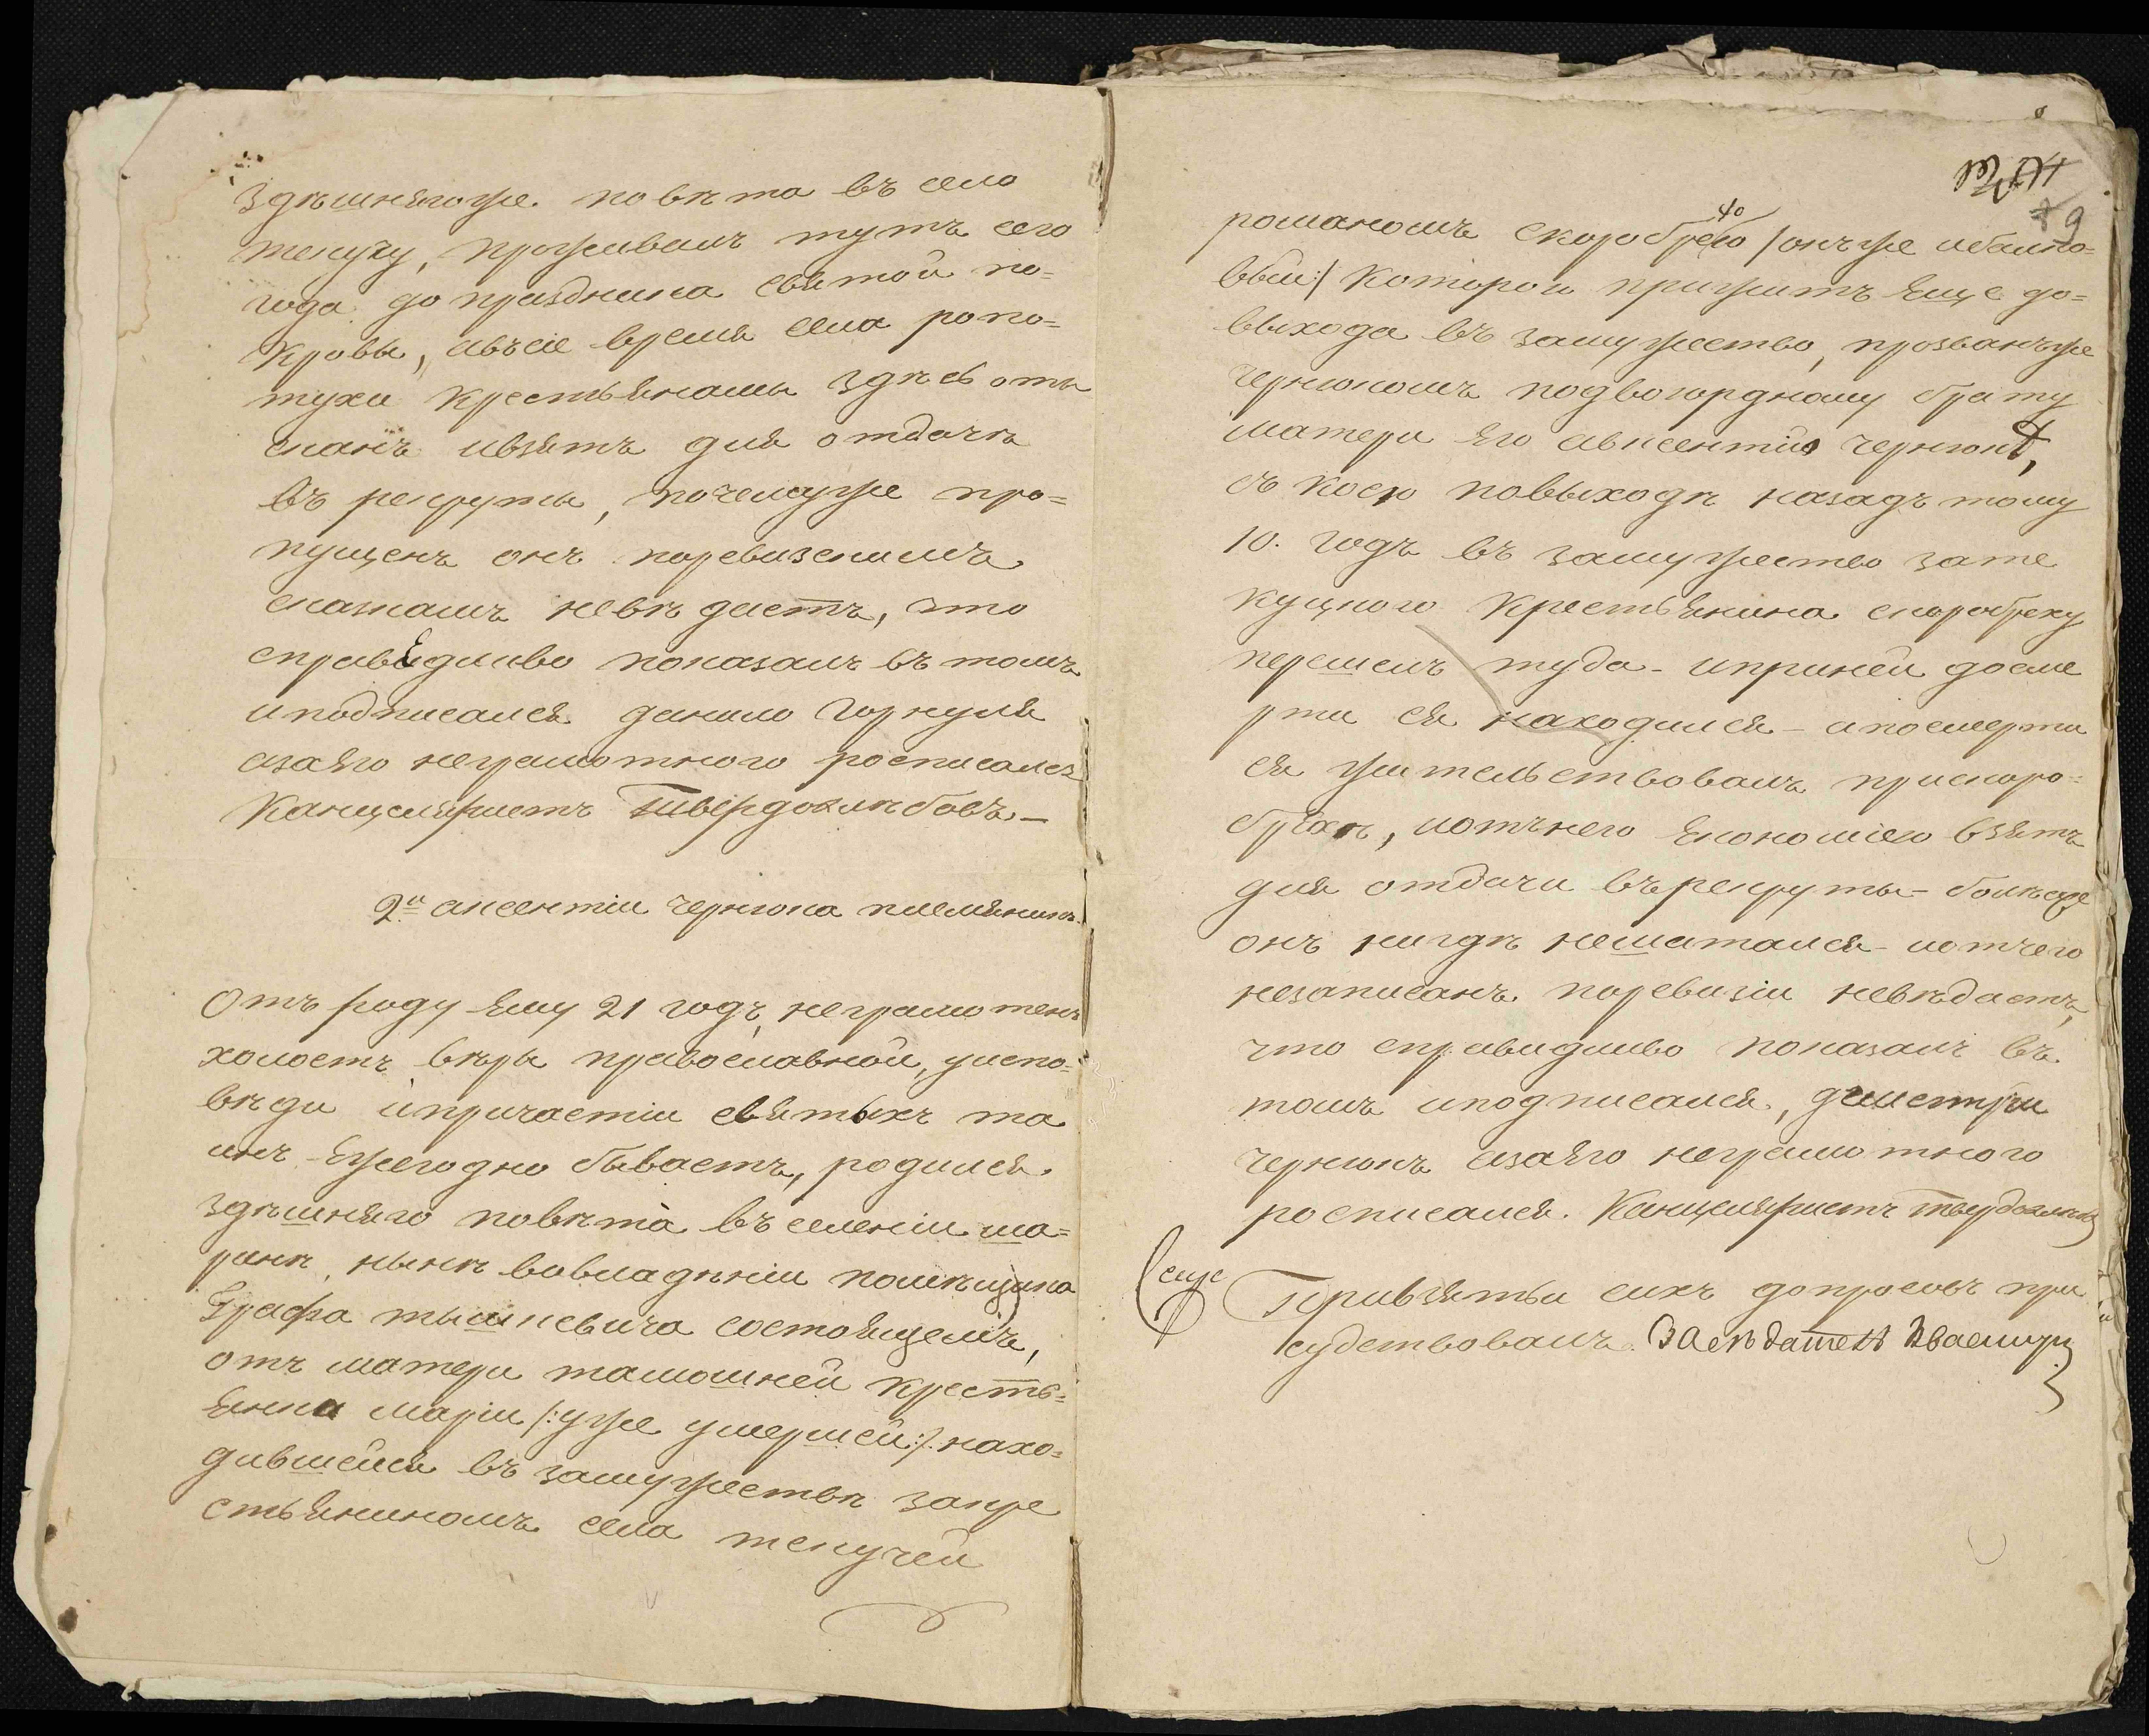 здѣшнягоже повѣта въ село
текучу, проживалъ тутъ сего
года до праздника святой по=
кровы, авъсіе время села ропо=
тухи крестьянами здѣсь оты
сканъ ивзятъ для отдачи
въ рекруты, почемуже про=
пущенъ онъ поревизскимъ
сказкамъ невѣдаетъ, что
справедливо показалъ въ томъ
иподписался данило горкуля
азаяго неграмотного росписался
Канцеляристъ Твердохлѣбовъ —
2й авсентіи чернюка племянникъ
Отъ роду яму 21 годъ, неграмотенъ
холостъ вѣры православной, уиспо=
вѣди ипричастіи святыхъ та
инъ яжегодно бываетъ, родился
здѣшняго повѣта въ селеніи ма=
ранѣ, нынѣ вовладѣніи помѣщика
Графа тышкевича состоящемъ,
отъ матери тамошней кресть=
янки маріи /:уже умершей:/ нахо=
дившейся въ замужествѣ закре
стьяниномъ села текучей
9
40
романомъ скоробрехо /онъже
вый:/ которой прижитъ яще до=
выхода въ замужество, прозванъже
чернюкомъ подвоюродному брату
матери яго авксентію чернюк,
съ коею повыходѣ назадъ тому
10. годъ въ замужество зате
кущного крестьянина скоробреху
перешелъ туда - иприней досме
рти ея находился - апосмерти
ея жительствовалъ прискоро=
брехѣ, иотънего якономіею взятъ
для отдачи въ рекруты - болѣеже
онъ нигдѣ нешатался - иотчего
незаписанъ поревизіи невѣдаетъ,
что справидливо показалъ въ
томъ иподписался, дмистріи
чернюкъ азаяго неграмотного
росписался. Канцеляристъ Твердохлѣб
Привзятьи сихъ допросовъ при
судствовалъ. Засѣдатель